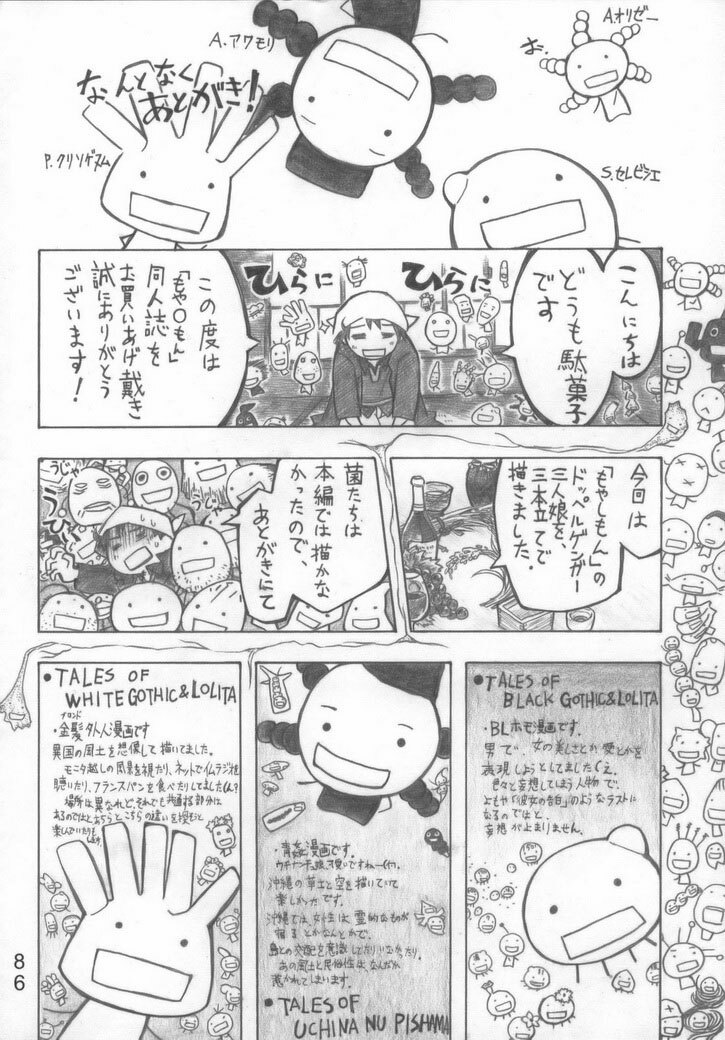 A.オリゼー
お。
A.アワモリ
なんとなく
あとがき!
P.クリソゲヌム
S.セレビシエ
こんにちは
どうも駄菓子
です
ひらに
ひらに
この度は
「もや〇もん」
同人誌を
お買いあげ戴き
誠にありがとう
ございます!
今回は
「もやしもん」の
ドッペルゲンガー
三人娘を、
三本立てで
描きました。
菌たちは
本編では描かな
かったので、
あとがきにて
うじゃ
うじゃ
うひー
•TALES OF
BLACK GOTHIC&LOLITA
・BLホモ漫画です。
男で、女の美しさとか愛とかを
表現しようとしてました(え。
色々と妄想してしまう人物で
よもや「彼女の告白」のようなラストに
なるのではと、
妄想が止まりません。
・青姦漫画です。
沖縄の草土と空を描いていて
楽しかったです。
沖縄では、女性は霊的なものが
宿るとかなんとかで、
島との交配を意識してたりしなかったり。
あの風土と民俗性はなんだか
惹かれてしまいます。
•TALES OF
UCHINA NU PISHAMA
•TALES OF
WHITE GOTHIC&LOLITA
ブロンド
・金髪外人漫画です
異国の風土を想像して描いてました。
モニタ越しの風景を視たり、ネットでイムラジオを
聴いたり、フランスパンを食べたりしてました(え?
場所は異なれど、それでも共通する部分は
あるのではとあちらとこちらの違いを探もうと
楽しんでいたりも
86